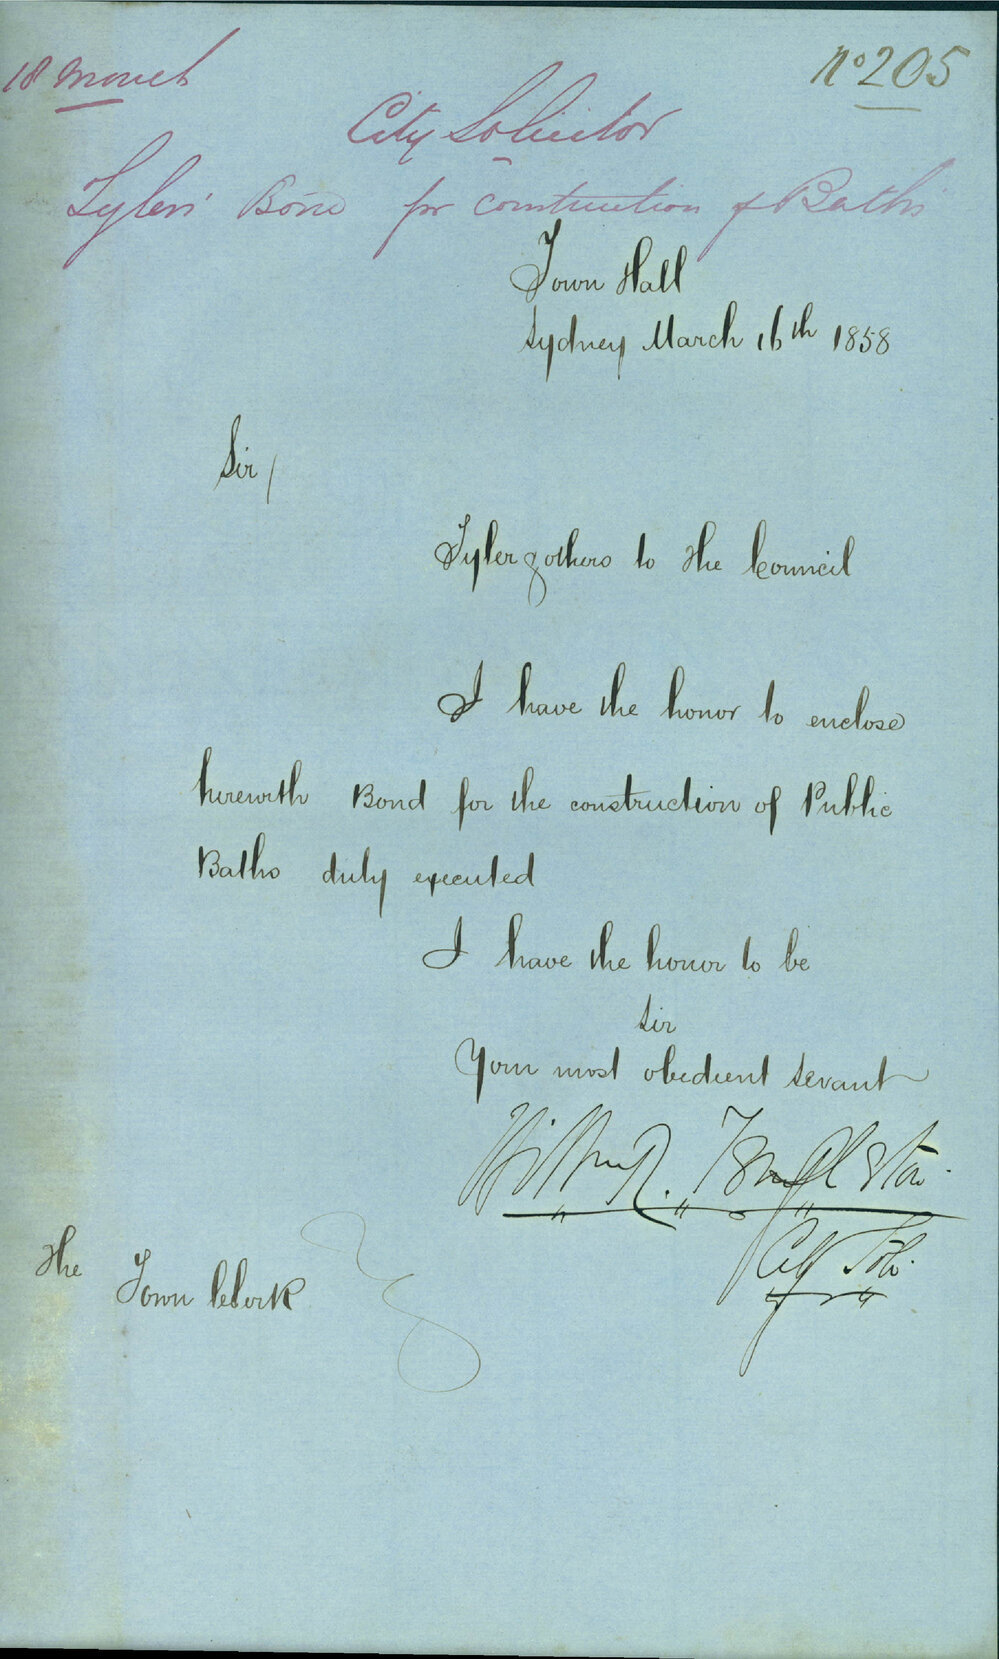 18 March
No 205
City Solicitor
Tyler's Bond for construction of Baths
Town Hall
Sydney March 16th 1858
Sir/
Tyler & others to the Council
I have the honor to enclose
herewith Bond for the construction of Public
Baths duly executed
I have the honor to be
Sir
Your most obedient servant
City Solr.
The
Town Clerk